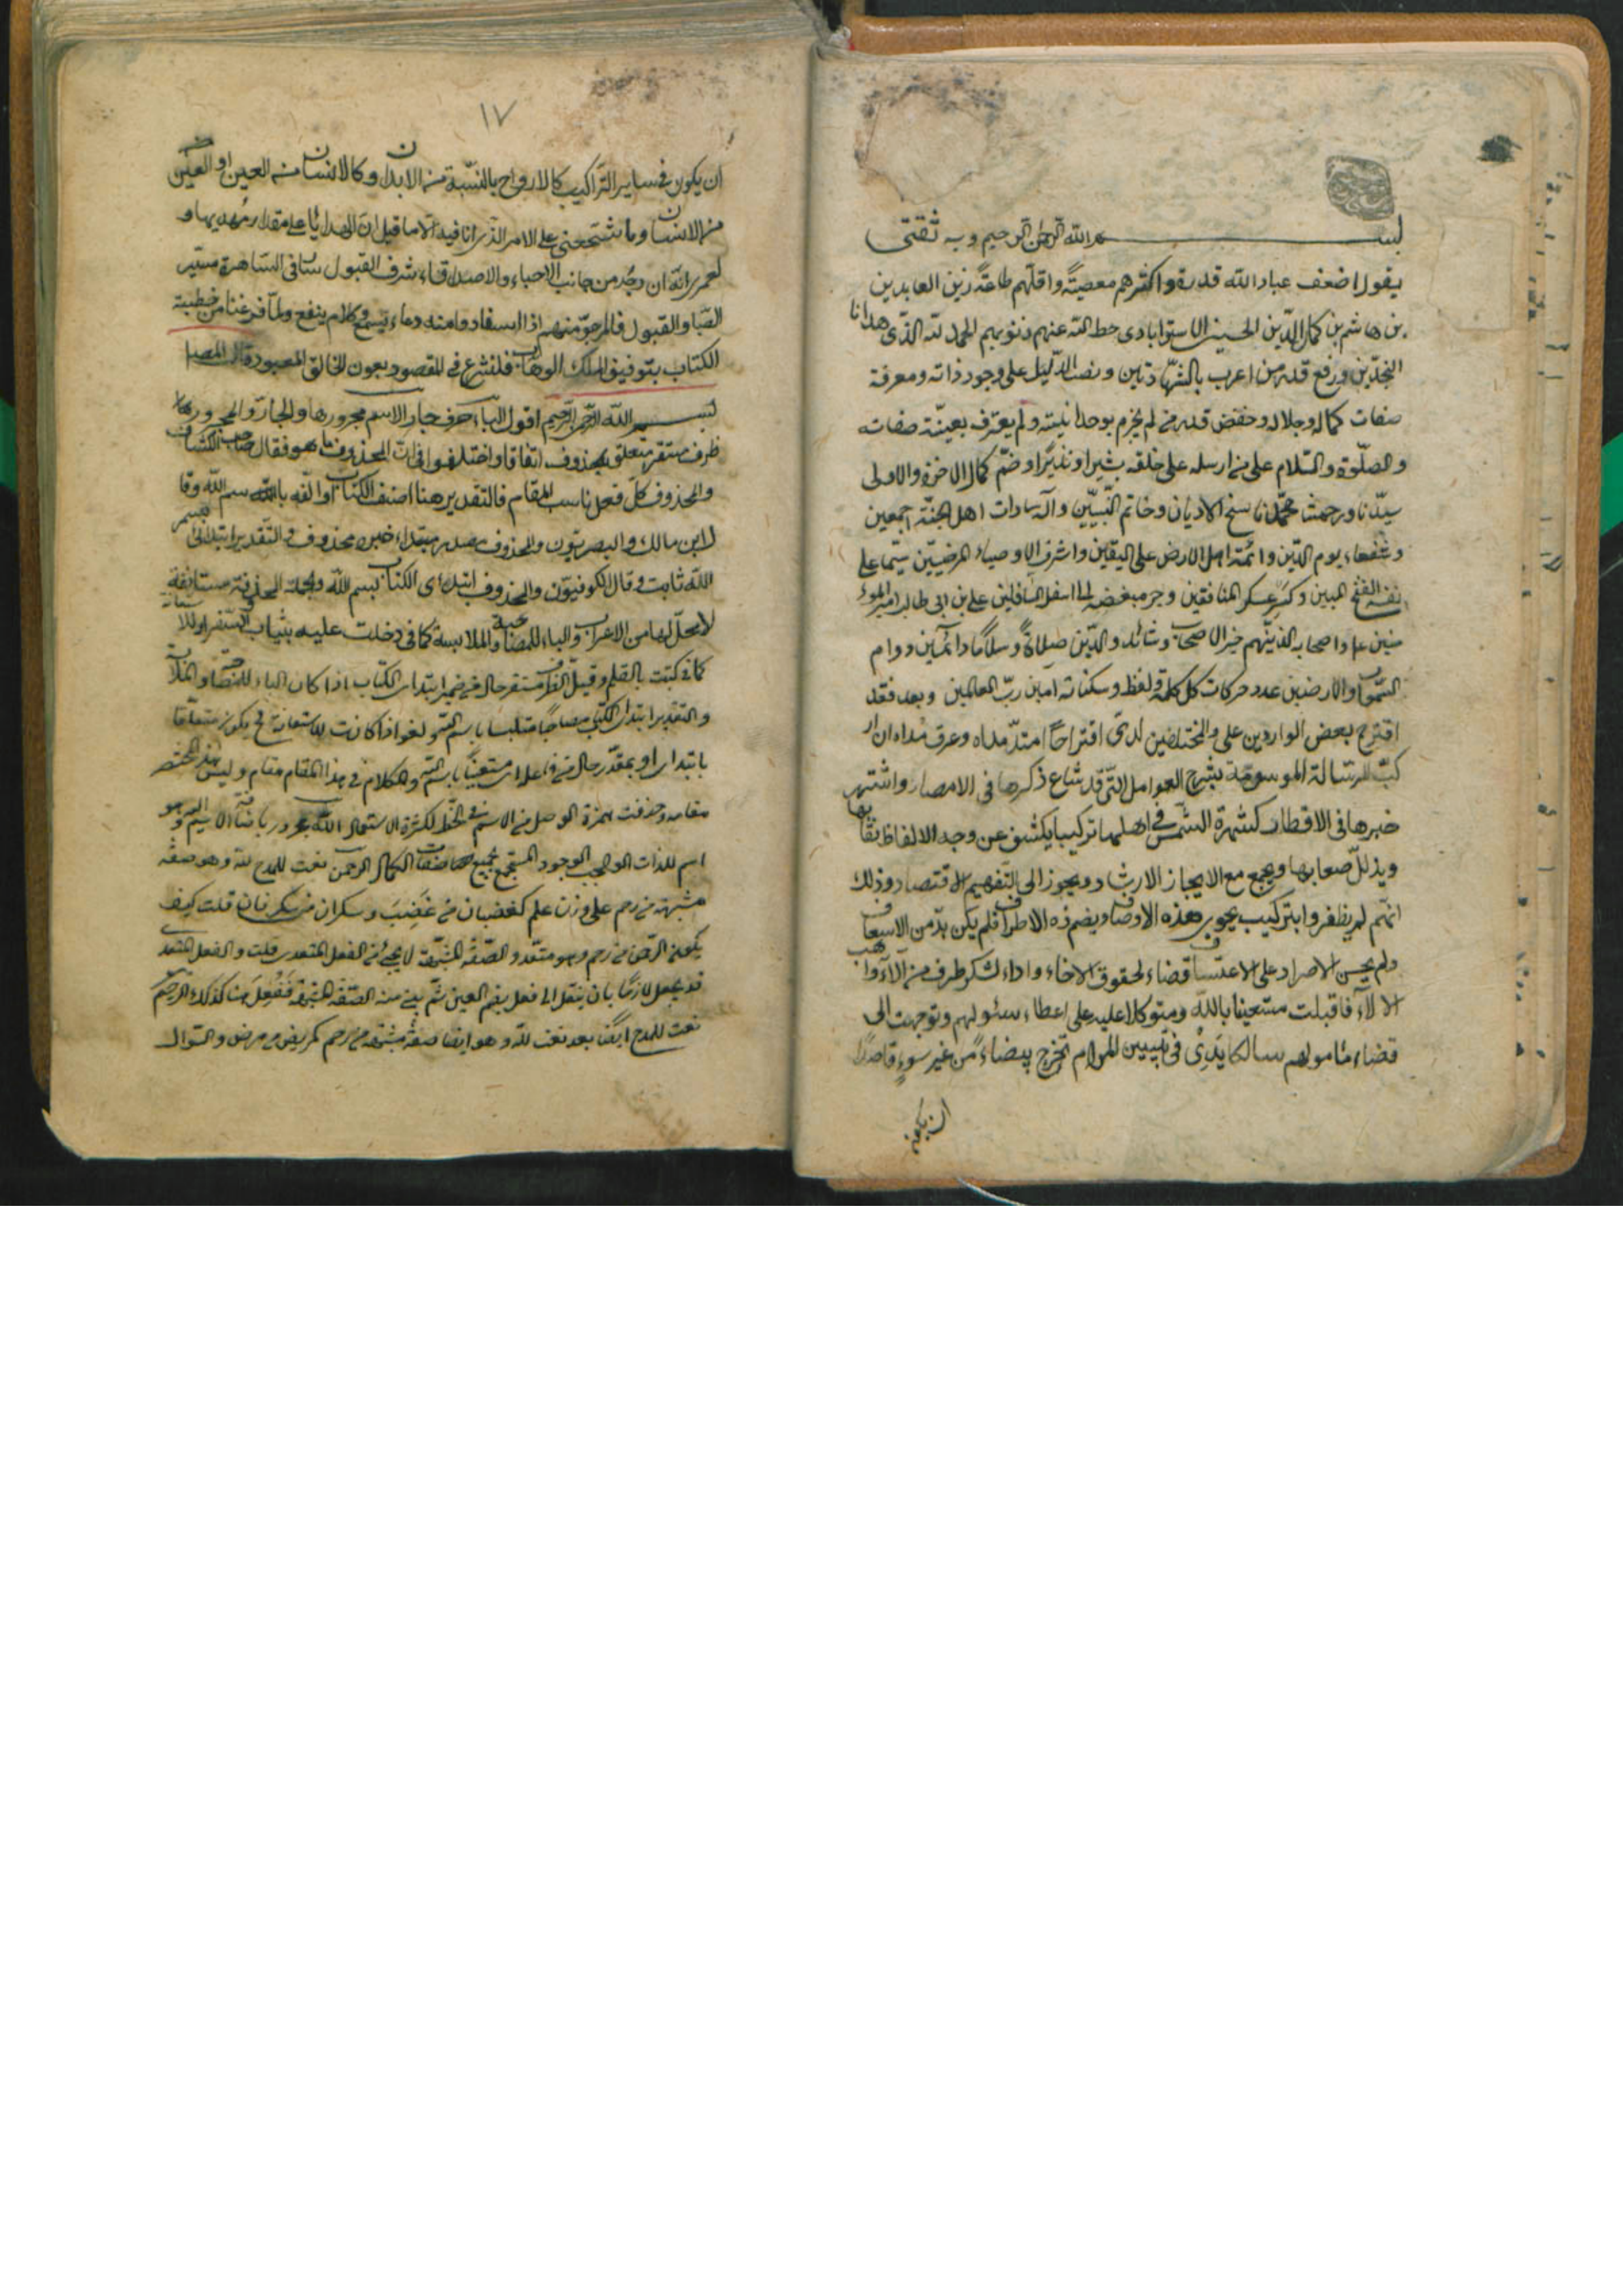 بسم الله الرحمن الرحيم وبه ثقتى
يقول اضعف عباد الله قدرة واكثرهم معصيتة واقلهم طاعة زين العابدين
بن هاشم بن كمال الدين الحسينى الاستوابادى حط الله عنهم ذنوبهم الحمد لله الذى هدانا
النجدين ورفع قدر من اعرب بالشهادتين ونصب الدليل على وجود ذاته ومعرفة
صفات كماله وجلاله وخفض قدر من لم يجزم بوحدانيته ولم يعترف بعينية صفاته
والصلوة والسلام على من ارسله على خلقه بشيرا ونذيرا وضم كمال الاخرة والاولى
سيدنا ورحمتنا محمد ناسخ الاديان وخاتم النبيين وآله سادات اهل الجنة اجمعين
وشفعاء يوم الدين وائمة اهل الارض على اليقين واشرف الاوصياء المرضيين سيما على
نفسه الفتح المبين وكسر عسكر المنافقين وجر مبغضه الى اسفل السافلين على بن ابى طالب امير المؤ
منين واصحابه الذينهم خير الاصحاب وشائد والدين صلاة وسلاما دائمين دوام
السموات والارضين عدد حركات كل كلمة ولفظ وسكناته امين رب العالمين وبعد فقد
اقترح بعض الواردين على والمختلفين لدى اقتراحا امتد مداه وعرف مداه ان ار
كب للرسالة الموسومة بشرح العوامل التى قد شاع ذكرها فى الامصار واشتهر
خبرها فى الاقطار كشهرة الشمس فى اهلها تركيبا يكشف عن وجه الالفاظ نقابها
ويذلل صعابها ويجمع مع الايجاز الارشاد ويجوز الى التفهيم الاقتصاد وذلك
انهم لم يظفروا بتركيب يحوى هذه الاوصاف ويضم ذه الاطراف فلم يكن بد من الاسعاف
ولم يحسن الاصرار على الاعتساف قضاء لحقوق الاخاء واداء لشكر طرف من آلاء واهب
الالاء فاقبلت مستعينا بالله ومتوكلا عليه على اعطاء سئولهم وتوجهت الى
قضاء مامولهم سالكا يدى فى تبيين المرام تخرج بيضاء من غير سوء قاصدا
ان يكون
١٧
ان يكون فى ساير التراكيب كالارواح بالنسبة من الابدان وكالانسان من العين او العين
من الانسان وما تشتحثنى على الامر الذى انا فيه الا ما قيل ان الهدايا على مقدار مهديها و
لعمرى انه ان وجد من جانب الاحباء والاصدقاء شرف القبول سار فى الساهرة مسير
الصبا والقبول فالمرجو منهم اذا استفادوا منه دعاء يسمع وكلام ينفع ولما فرغنا من خطبة
الكتاب بتوفيق الملك الوهاب فلنشرع فى المقصود بعون الخالق المعبود قال المص
بسم الله الرحمن الرحيم اقول الباء حرف جار الاسم مجرورها والجار والمجرور
ظرف مستقر متعلق بمحذوف اتفاقا واختلفوا فى ان المحذوف ما هو فقال صاحب الكشاف
والمحذوف كل فعل ناسب المقام فالتقدير هنا اصنف الكتاب او الفه بسم الله وقا
ل ابن مالك والبصريون والمحذوف مصدر مبتداء خبره محذوف والتقدير ابتدائى بسم
الله ثابت وقال الكوفيون والمحذوف ابتداى الكتاب بسم الله والجملة المحذوفة مستانفة
لا محل لها من الاعراب والباء للمصاحبة والملابسة كما فى دخلت عليه بثياب السفر او للاستعانة
كما فى كتبت بالقلم وقيل الظرف مستقر حال من ضمير ابتداى الكتاب اذا كان الباء للمصاحبة والملابسة
والتقدير ابتداى الكتاب مصاحبا متلبسا باسم الله ولغو اذا كانت للاستعانة فح يكون متعلقا
بابتداى او بمقدر حال من فاعله اى مستعينا باسم الله والكلام فى هذا المقام مقام وليس هذا المختصر
مقامه وحذفت همزة الوصل من الاسم فى الخط لكثرة الاستعمال الله مجرور باضافة الاسم اليه وهو
اسم للذات الواجب الوجود المستجمع لجميع صفات الكمال الرحمن نعت للمدح لله وهو صفة
مشبهة من رحم على وزن علم كغضبان من غضب وسكران من سكر فان قلت كيف
يكون الرحمن من رحم وهو متعد والصفة المشبهة لا يجئ من الفعل المتعدى قلت والفعل المتعدى
قد يجعل لازما بان ينقل الى فعل بضم العين ثم يبنى منه الصفة المشبهة ففعل هنا كذلك الرحيم
نعت للمدح ايضا بعد نعت لله وهو ايضا صفة مشبهة من رحم كمريض من مرض والسوال